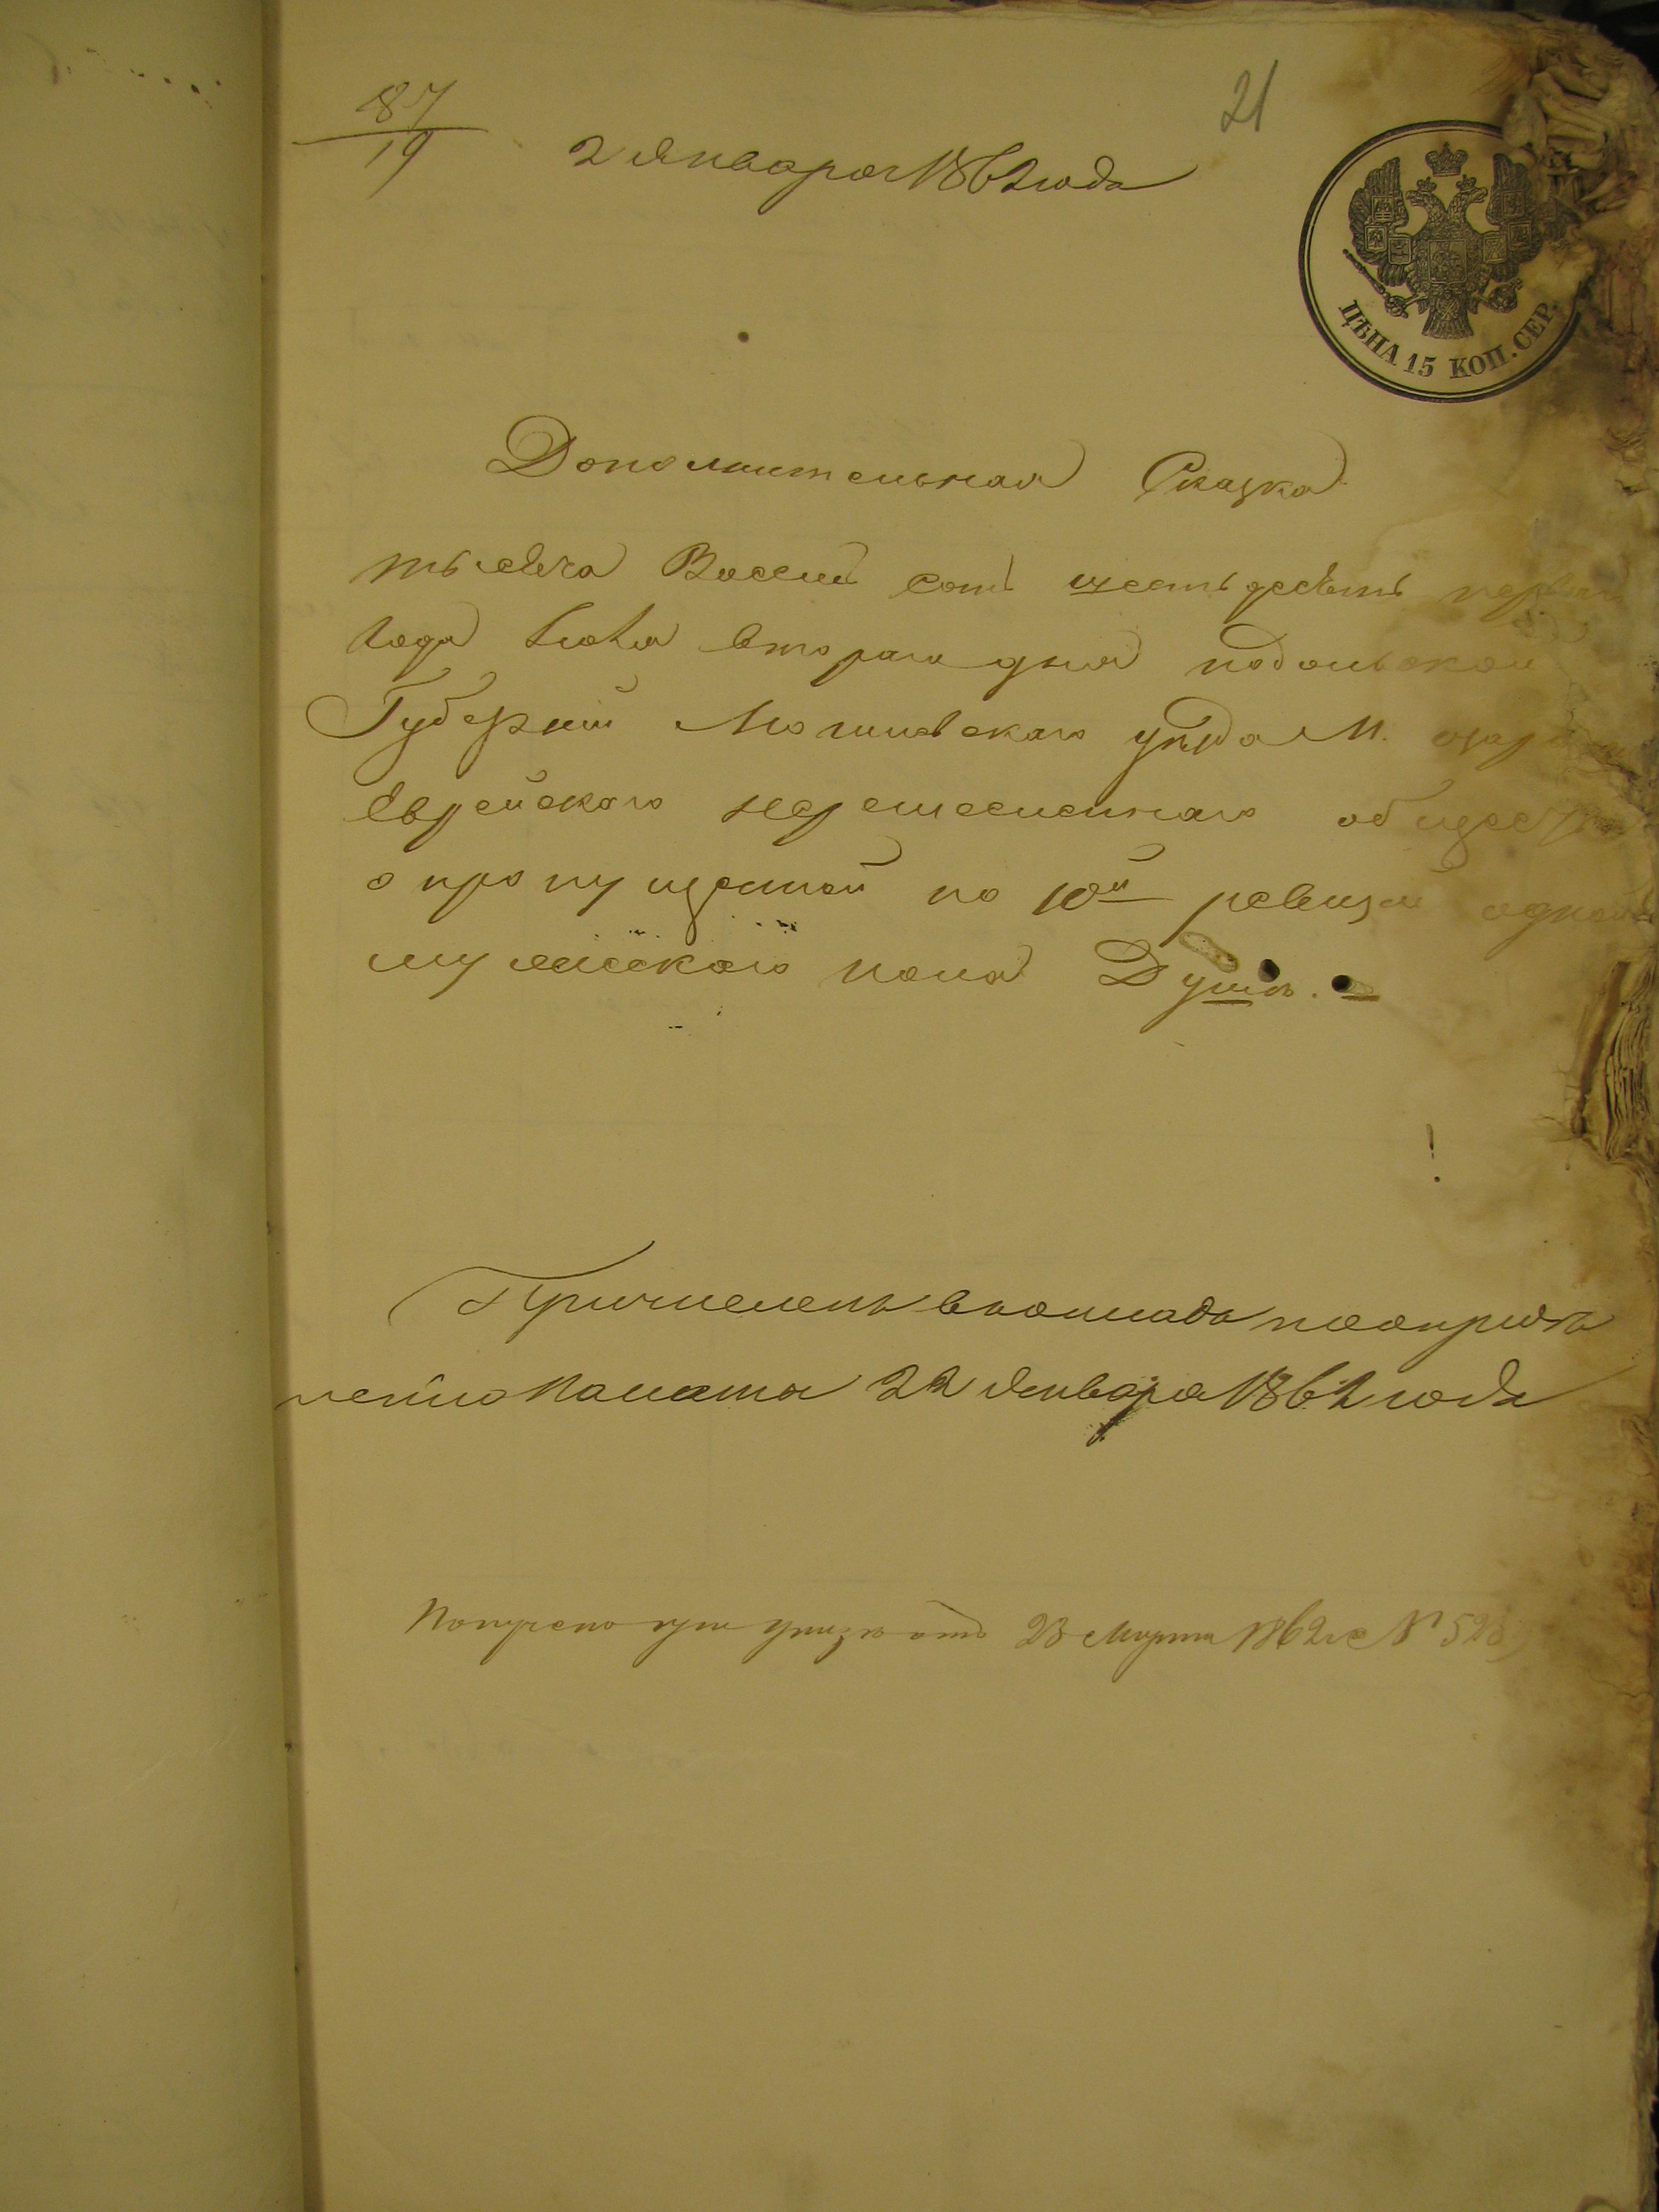 87
19
21
2 Января 1862 года
ЦѢНА 15 КОП. СЕР.
Дополнительная Сказка
тысяча Восемь сотъ шестьдесятъ первого
года Іюля втораго дня подольской
Губерніи Могилевскаго уезда М. озаринец
Еврейскаго мещанскаго общества
о пропущенной по 10й ревизіи одной
мужескаго пола Души.
Причисленъ въ окладъ по опредѣ
ленію Палаты 22 Января 1862 года
Получено при указе отъ 23 Марта 1862 г №